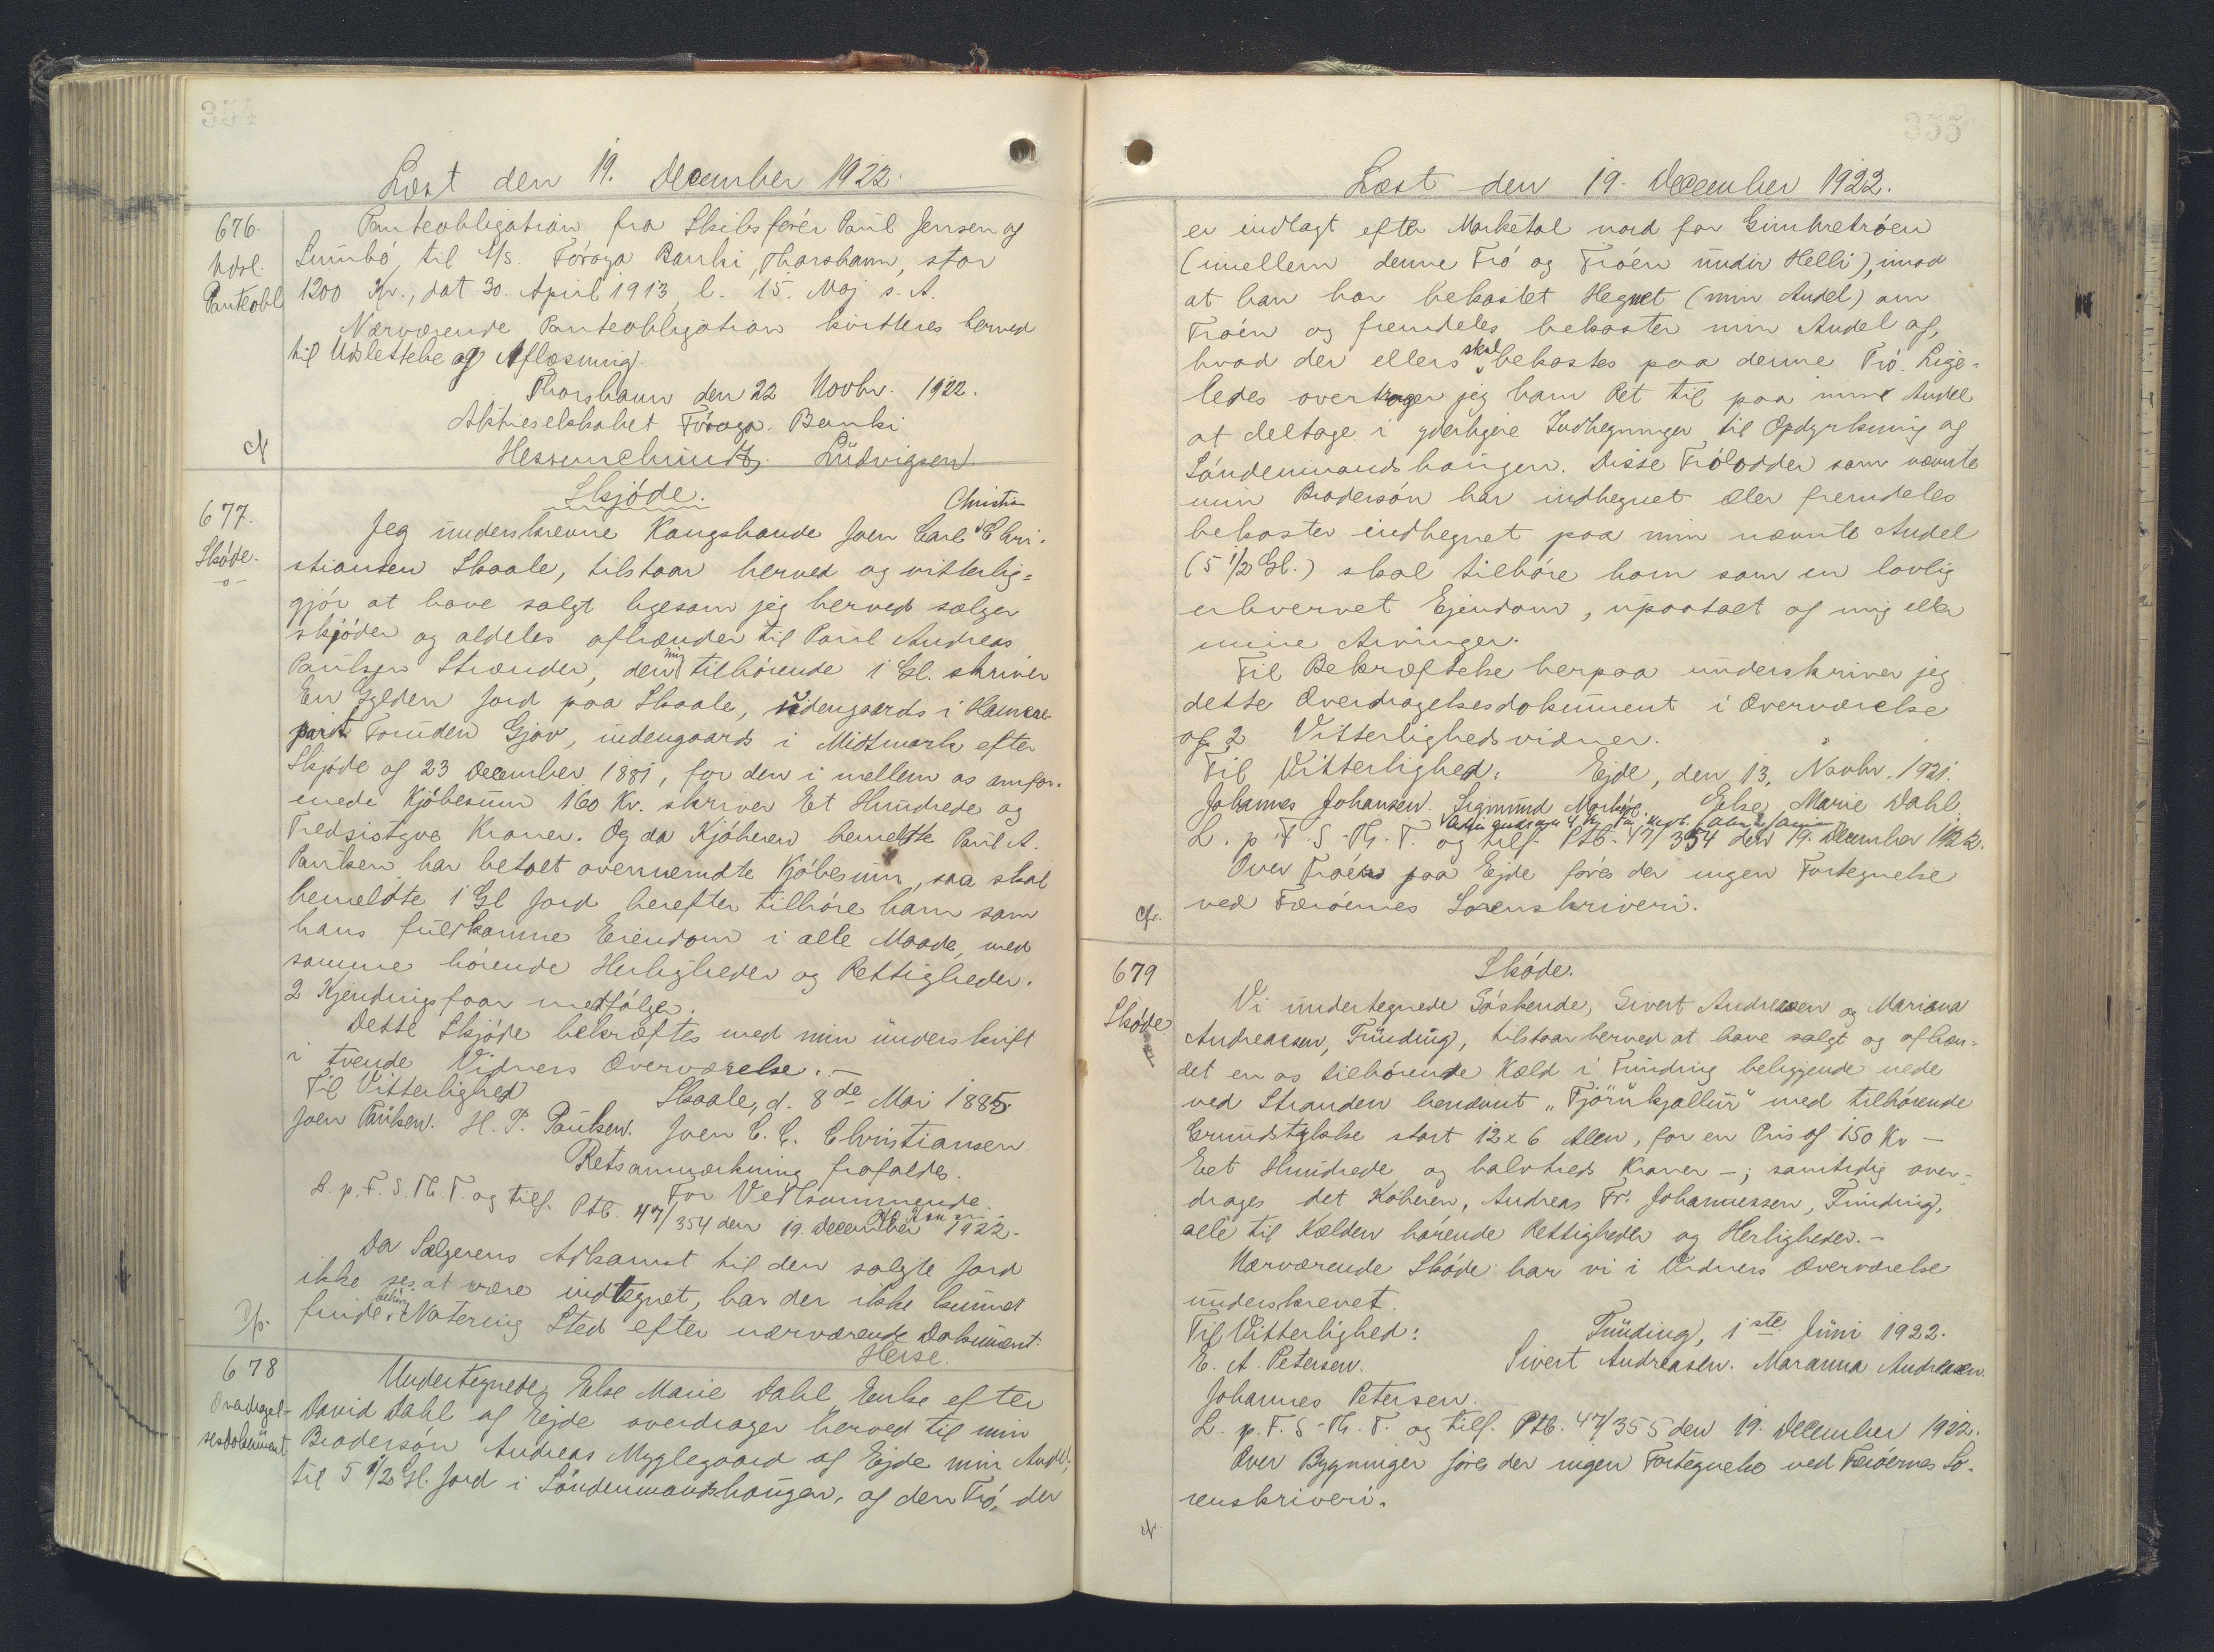 354
Læst den 19. December 1922.
676.
Udsl.
Panteobl.
Panteobligation fra Skibsfører Paul Jensen af
Sumbø, til A/S. Føroya Banki, Thorshavn, stor
1200 Kr., dat 30. April 1913, l. 15. Maj s. A.
Nærværende Panteobligation kvitteres herved
til Udslettelse og Aflæsning.
Thorshavn den 22 Novbr. 1922.
Aktieselskabet Føroya Banki
Ludvigsen.
677.
Skøde.
Skjøde.
Christia
Jeg underskrevne Kongsbonde Joen Carl Chri-
stiansen Skaale, tilstaar herved og vitterlig=
gjør at have solgt ligesom jeg herved sælger
skjøder og aldeles afhænder til Paul Andreas
Paulsen Strænder, den mig tilhørende 1 Gl. skriver
En Gylden Jord paa Skaale, udengaards i
part Gjov, indengaards i Midtmark efter
Skjøde af 23 December 1881, for den i mellem os omfor-
enede Kjøbesum 160 Kr. skriver Et Hundrede og
Tredsindstyve Kroner. Og da Kjøberen bemeldte Paul A.
Paulsen har betalt overnævnte Kjøbesum, saa skal
bemeldte 1 Gl Jord herefter tilhøre ham som
hans fuldkomne Eiendom i alle Maade, med
samme hørende Herligheder og Rettigheder.
2 Kjendingsfaar medfølger.
Dette Skjøde bekræftes med min underskrift
i tvende Vidners Overværelse.-
Til Vitterlighed Skaale, d. 8de Mai 1885.
Joen Paulsen. H. P. Paulsen. Joen C. C. Christiansen
Retsanmærkning frafaldes.
For Vedkommende
L. p. F. S. Th. T. og tilf. Ptb. 47/354 den 19. December 1922.
Da Sælgerens Adkomst til den solgte Jord
ikke ses at være indtegnet, har der ikke kunnet
finde behørig Notering Sted efter nærværende Dokument.
Heise.
678
Overdragel-
sesdokument.
Undertegnede, Else Marie Dahl Enke efter
David Dahl af Ejde overdrager herved til min
Brodersøn Andreas Myglegaard af Ejde min Andel,
til 5 1/2 Gl. Jord i Søndenmandshaugen, af den Trø, der
355
Læst den 19. December 1922.
er indlagt efter Marketal nord for Gimbretrøen
(imellem denne Trø og Trøen undir Helli), imod
at han har bekostet Hegnet (min Andel) om
Trøen og fremdeles bekoster min Andel af,
hvad der ellers skal bekostes paa denne Trø. Lige-
ledes overdrager jeg ham Ret til paa min Andel
at deltage i yderligere Indhegninger til Opdyrkning af
Søndenmandshaugen. Disse Trølodder som nævnte
min Brodersøn har indhegnet eller fremdeles
bekoster indhegnet paa min nævnte Andel
(5 1/2 Gl.) skal tilhøre ham som en lovlig
erhvervet Ejendom, upaatalt af mig eller
mine Arvinger.
Til Bekræftelse herpaa underskriver jeg
dette Overdragelsesdokument i Overværelse
af 2 Vitterlighedsvidner.
Til Vitterlighed: Ejde, den 13. Novbr. 1921.
Johannes Johansen. Sigmund Mørkøre. Else Marie Dahl
L. p. F. S. Th. T. og tilf. Ptb. 47/354 den 19. December 1922.
Over Trøer paa Ejde føres der ingen Fortegnelse
ved Færøernes Sorenskriveri.
679
Skøde.
Skøde.
Vi undertegnede Søskende, Sivert Andreasen og Mariana
Andreasen, Funding, tilstaar herved at have solgt og afhæn-
det en os tilhørende Kæld i Funding beliggende nede
ved Stranden benævnt „Fjørukjallur" med tilhørende
Grundstykke stort 12 x 6 Alen, for en Pris af 150 Kr -
Eet Hundrede og halvtreds Kroner -; samtidig over-
drages det Køberen, Andreas Fr. Johannessen, Funding,
alle til Kælden hørende Rettigheder og Herligheder.-
Nærværende Skøde har vi i Vidners Overværelse
underskrevet.
Til Vitterlighed: Funding, 1ste Juni 1922.
E. A. Petersen. Sivert Andreasen. Maranna Andreasen.
Johannes Petersen.
L. p. F. S. Th. T. og tilf. Ptb. 47/355 den 19. December 1922.
Over Bygninger føres der ingen Fortegnelse ved Færøernes So-
renskriveri.